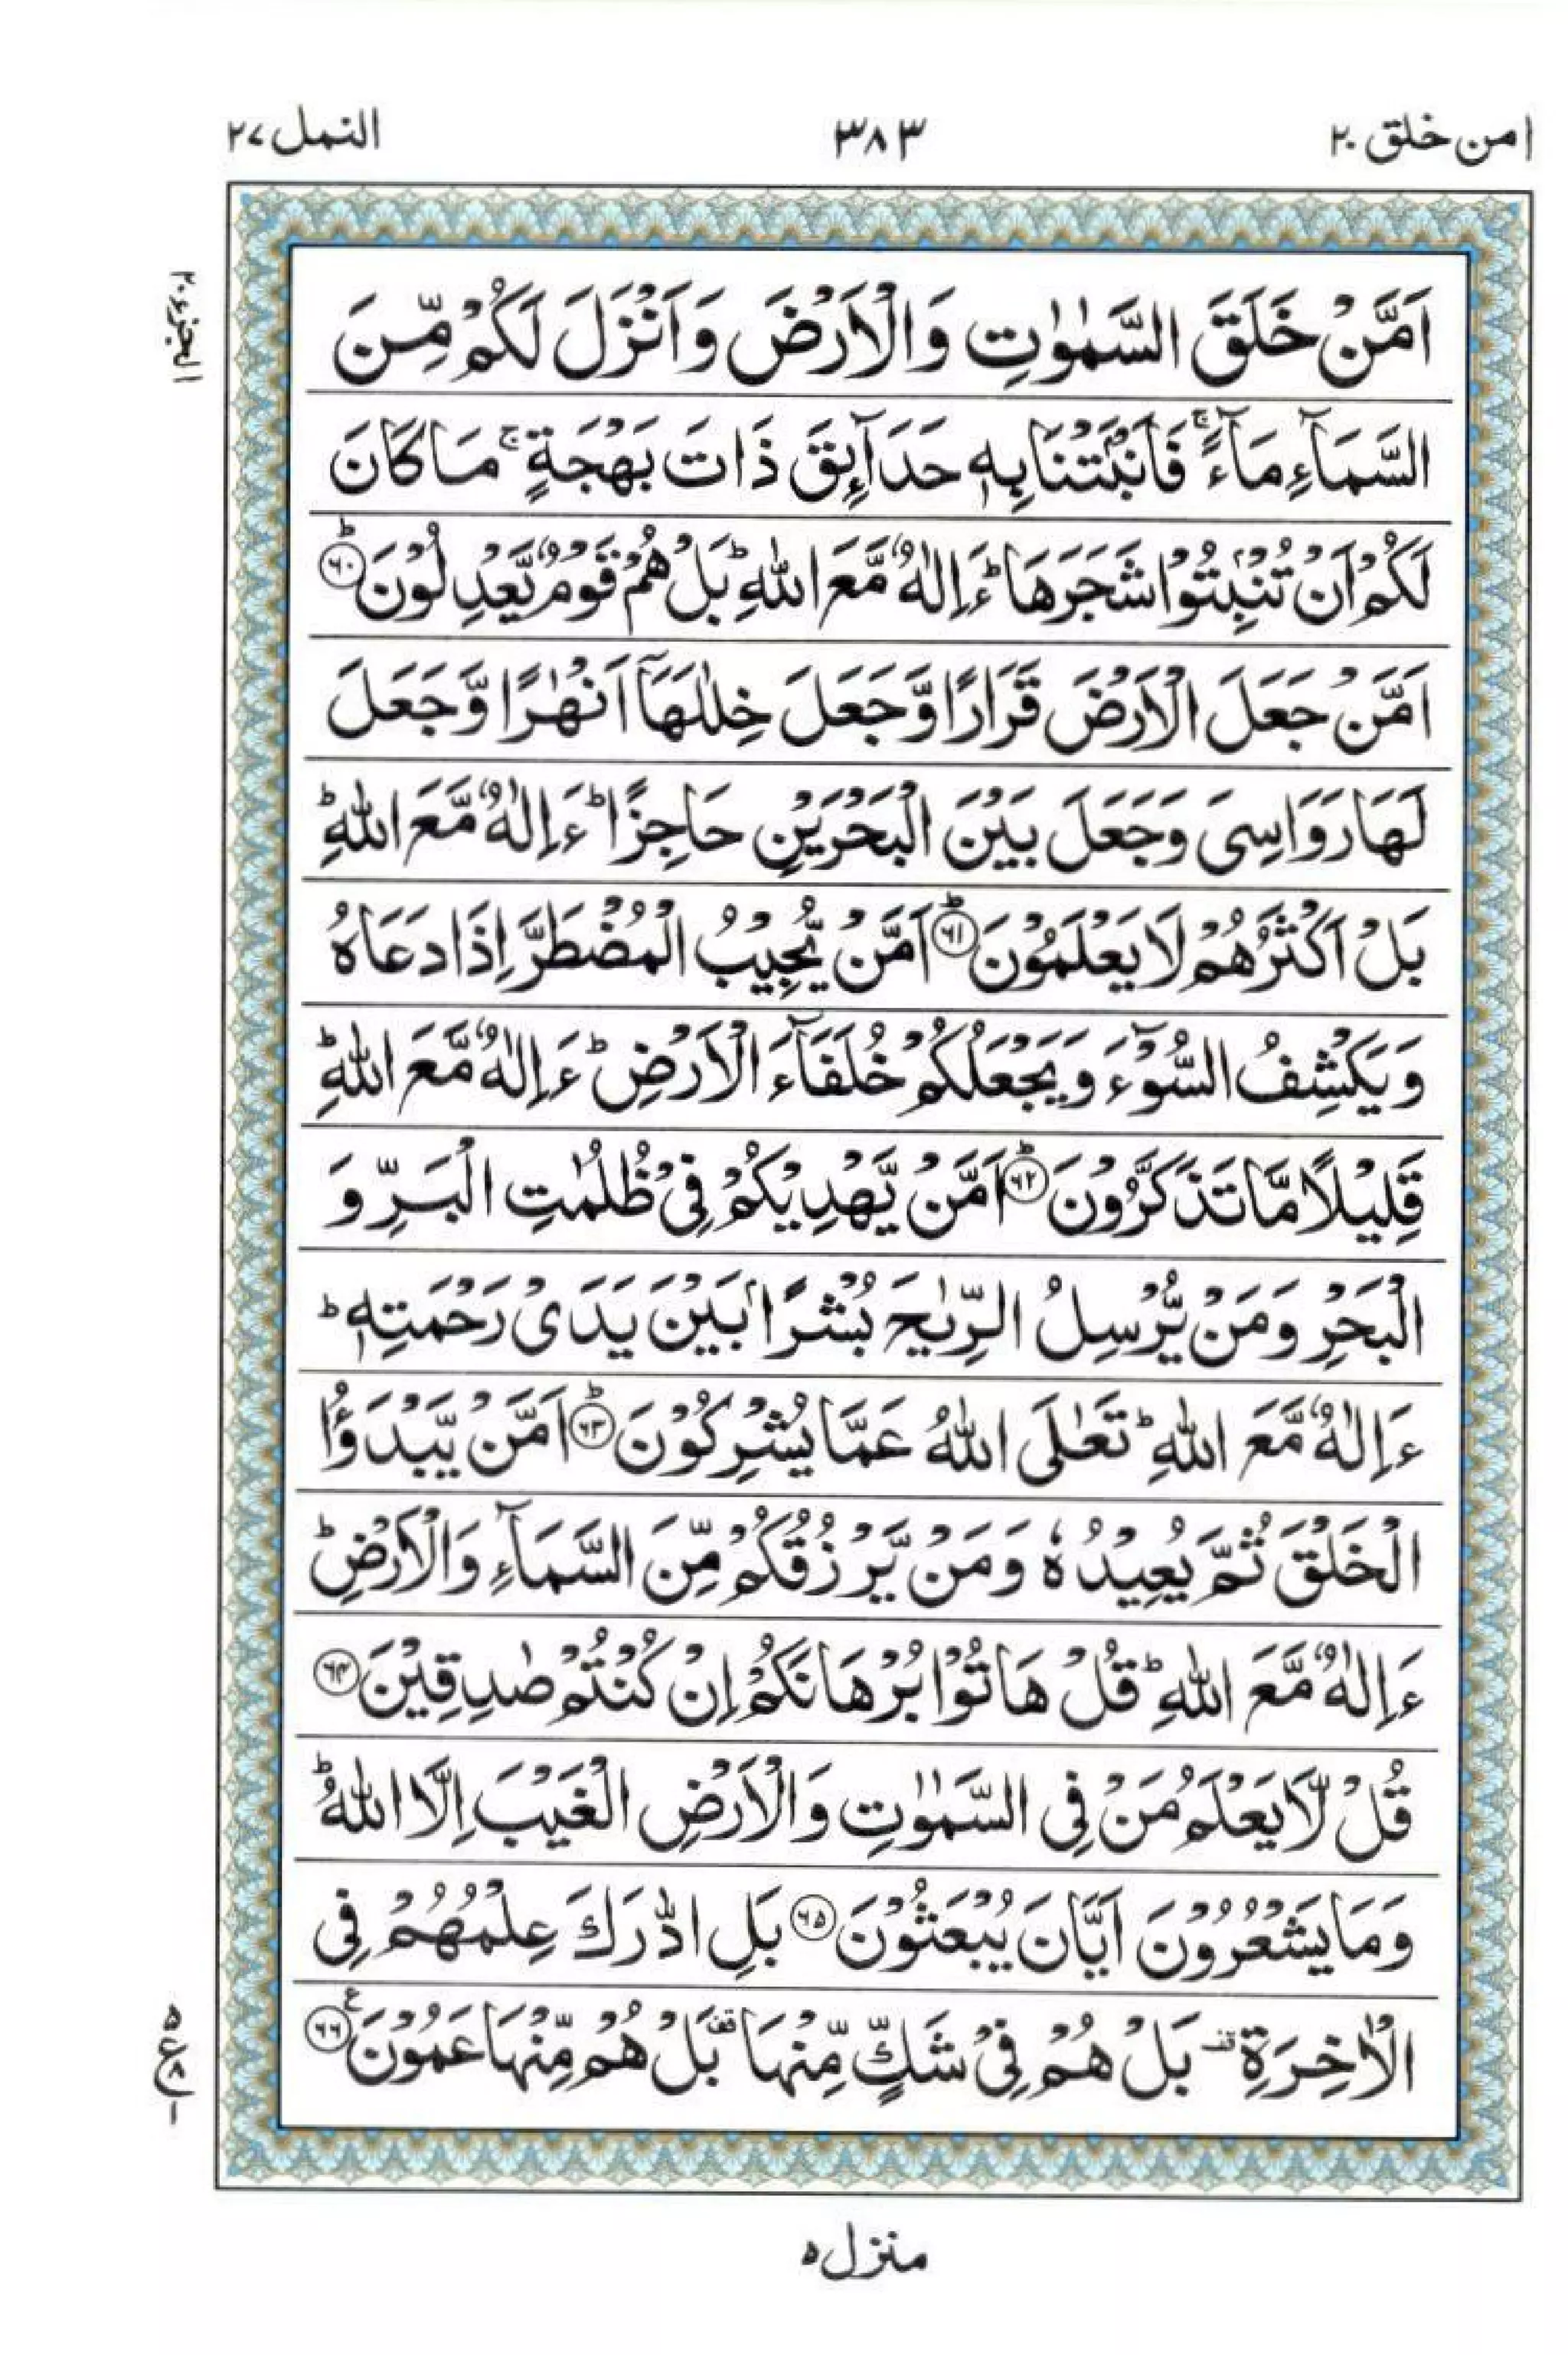 امن خلق ۲۰
۳۸۳
النمل ۲۷
الجزء ۲۰
اَمَّنْ خَلَقَ السَّمٰوٰتِ وَالْاَرْضَ وَاَنْزَلَ لَكُمْ مِّنَ
السَّمَآءِ مَآءً ۚ فَاَنْۢبَتْنَا بِهٖ حَدَآىِٕقَ ذَاتَ بَهْجَةٍ ۚ مَا كَانَ
لَكُمْ اَنْ تُنْۢبِتُوْا شَجَرَهَا ؕ ءَاِلٰهٌ مَّعَ اللّٰهِ ؕ بَلْ هُمْ قَوْمٌ یَّعْدِلُوْنَ ؕ۶۰
اَمَّنْ جَعَلَ الْاَرْضَ قَرَارًا وَّجَعَلَ خِلٰلَهَاۤ اَنْهٰرًا وَّجَعَلَ
لَهَا رَوَاسِیَ وَجَعَلَ بَیْنَ الْبَحْرَیْنِ حَاجِزًا ؕ ءَاِلٰهٌ مَّعَ اللّٰهِ ؕ
بَلْ اَكْثَرُهُمْ لَا یَعْلَمُوْنَ ؕ۶۱ اَمَّنْ یُّجِیْبُ الْمُضْطَرَّ اِذَا دَعَاهُ
وَیَكْشِفُ السُّوْٓءَ وَیَجْعَلُكُمْ خُلَفَآءَ الْاَرْضِ ؕ ءَاِلٰهٌ مَّعَ اللّٰهِ ؕ
قَلِیْلًا مَّا تَذَكَّرُوْنَ ؕ۶۲ اَمَّنْ یَّهْدِیْكُمْ فِیْ ظُلُمٰتِ الْبَرِّ وَ
الْبَحْرِ وَمَنْ یُّرْسِلُ الرِّیٰحَ بُشْرًۢا بَیْنَ یَدَیْ رَحْمَتِهٖ ؕ
ءَاِلٰهٌ مَّعَ اللّٰهِ ؕ تَعٰلَی اللّٰهُ عَمَّا یُشْرِكُوْنَ ؕ۶۳ اَمَّنْ یَّبْدَؤُا
الْخَلْقَ ثُمَّ یُعِیْدُهٗ وَمَنْ یَّرْزُقُكُمْ مِّنَ السَّمَآءِ وَالْاَرْضِ ؕ
ءَاِلٰهٌ مَّعَ اللّٰهِ ؕ قُلْ هَاتُوْا بُرْهَانَكُمْ اِنْ كُنْتُمْ صٰدِقِیْنَ ۶۴
قُلْ لَّا یَعْلَمُ مَنْ فِی السَّمٰوٰتِ وَالْاَرْضِ الْغَیْبَ اِلَّا اللّٰهُ ؕ
وَمَا یَشْعُرُوْنَ اَیَّانَ یُبْعَثُوْنَ ۶۵ بَلِ ادّٰرَكَ عِلْمُهُمْ فِی
الْاٰخِرَةِ قف بَلْ هُمْ فِیْ شَكٍّ مِّنْهَا قف بَلْ هُمْ مِّنْهَا عَمُوْنَ ۶۶ ع
۵
ع
۸
۱
منزل ۵